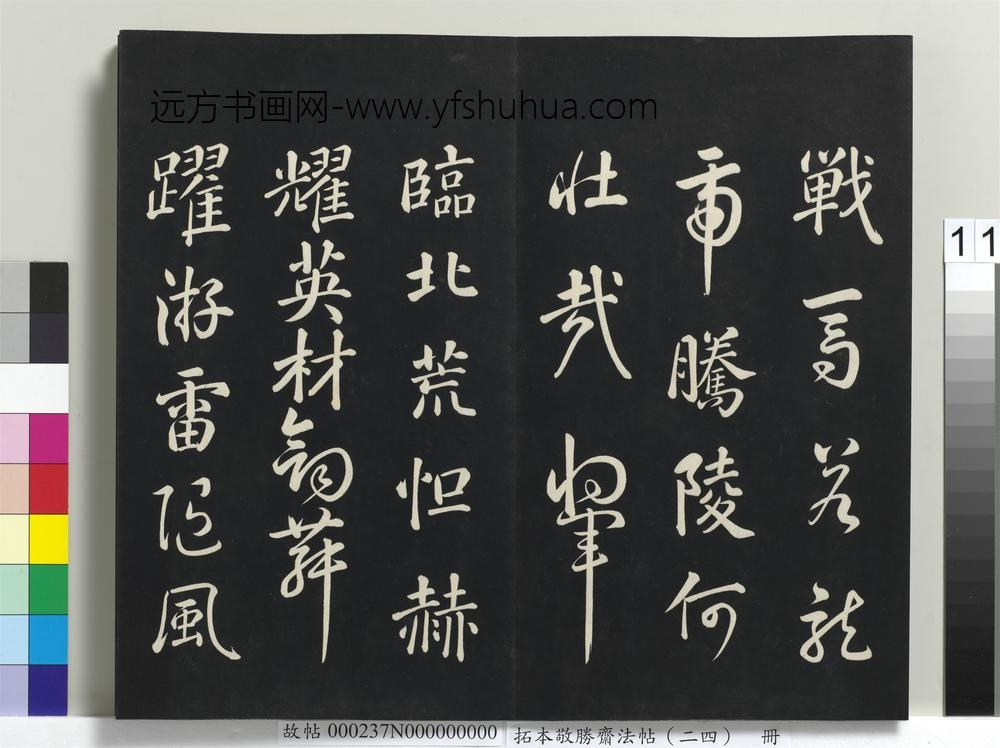 远方书画网-www.yfshuhua.com
戰馬若龍
虎騰陵何
壯哉將軍
臨北荒烜赫
耀英材劍舞
躍游雷隨風
11
故帖 000237N000000000
拓本敬勝齋法帖（二四） 冊